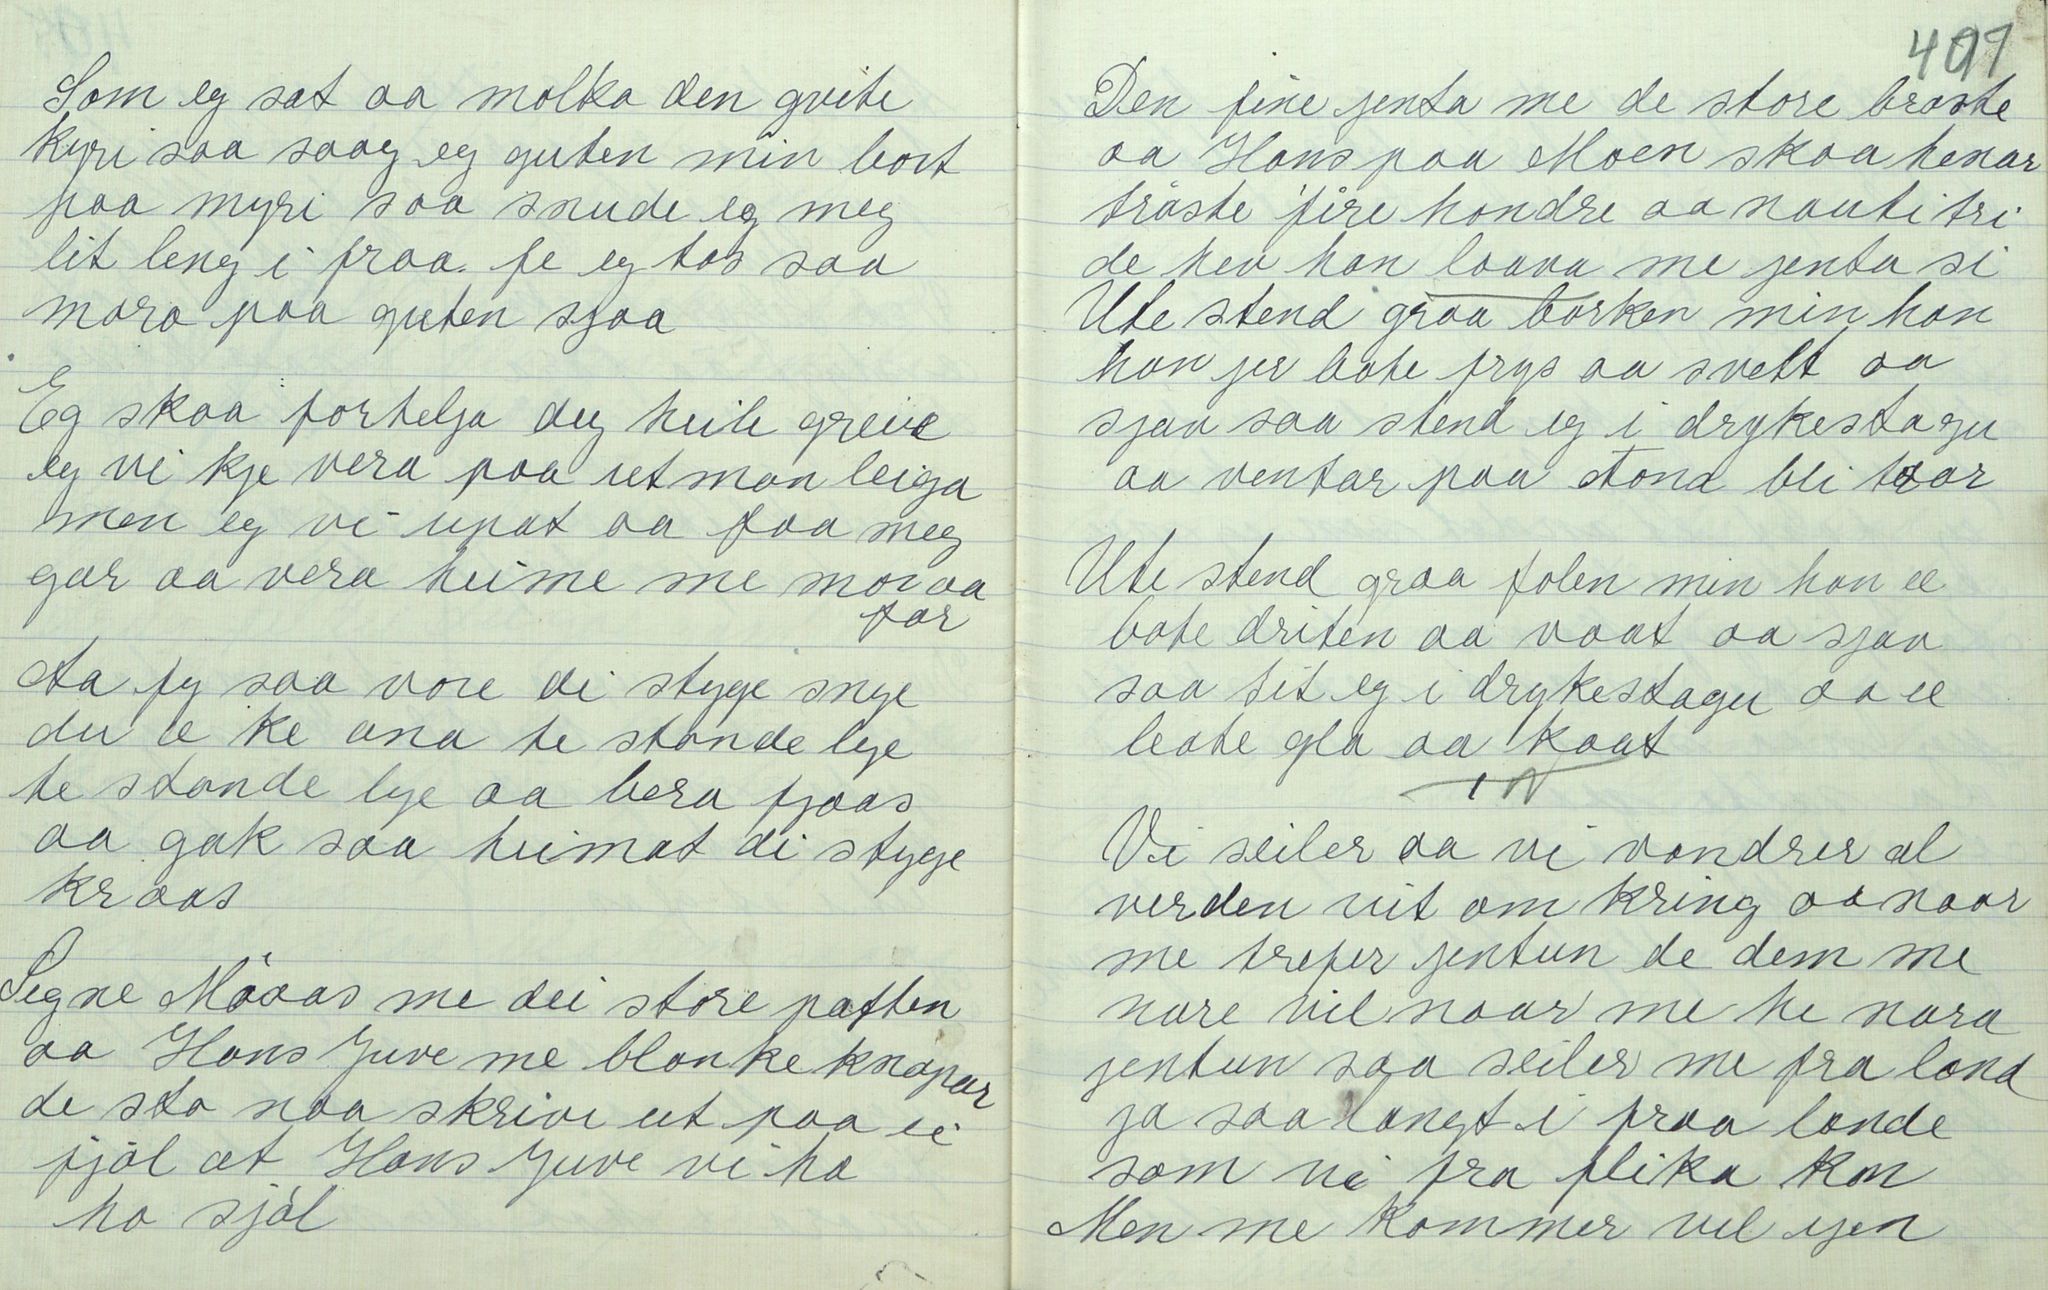 Som eg sat aa molka den qvite
kyri saa saag eg guten min bort
paa myri saa snude eg meg
lit leng i fraa. fe eg tos saa
moro paa guten sjaa
Eg skaa fortelja deg heile greive
eg vi kje vera paa utman leiga
men eg vi upat aa faa meg
gar aa vera heime me mor aa
far
Aa fy saa vore di stygge snye
du æ ke ana te stande lye
te stande lye aa bera fjaas
aa gak saa heimat di stygge
kraas
Signe Möaas me dei store patten
aa Hans Juve me blanke knapar
de sto naa skrive ut paa ei
fjöl at Hans Juve vi ha
ho sjöl
497
Den fine jenta me de store braste
aa Hans paa Moen skaa henar
tråste fire hondre aa nauti tri
de hev han laava me jenta si
Ute stend graa borken min han
han jer bate frys aa svelt aa
sjav saa stend eg i drykestagu
aa ventar paa stond bli tvar
Ute stend graa folen min han æ
bate driten aa vaat aa sjav
saa sit eg i drykestagu aa æ
leate gla aa kaat
Vi seiler aa vi vandrer al
verden uit om kring aa naar
me trefer jentun de dem me
nare vil naar me he nara
jentun saa seiler me fra land
ja saa langt i fraa lande
som vi fra flika kan
Men me kommer vel igen